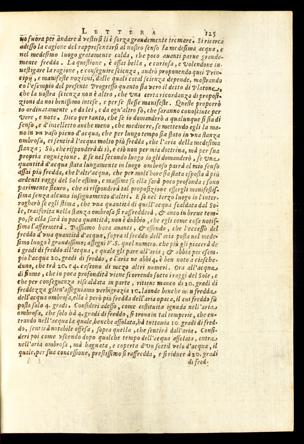 LETTERA 125
no fuora per andare à vestirsi li è forza grandemente tremare. Si ricerca
adesso la cagione del rappresentarsi al nostro senso la medesima acqua, e
nel medesimo luogo gratamente calda, che poco avanti parue grande-
mente fredda. La questione, è assai bella, e curiosa, e volendone in-
uestigare la ragione, e conseguire scienza, andrò proponendo quei Prin-
cipij, e manifeste nozioni, dalle quali scienza depende, mostrando
co l'esempio del presente Progresso quanto sia vero il detto di Platone,
che la nostra scienza non è altro, che una certa ricordanza di proposi-
zioni da noi benissimo intese, e per se stesse manifeste. Queste proporrò
io ordinatamente, e da lei, e da ogn'altro sò, che saranno conosciute per
vere, e note. Dico per tanto, che se io domanderò a qualunque si sia di
senso, e d'intelletto anche meno, che mediocre, se mettendo egli la ma-
no in un vaso pieno d'acqua, che per lungo tempo sia stato in una stanza
ombrosa, ei sentirà l'acqua molto più fredda, che l'aria della medesima
stanza; Sò, che risponderà di sì, e ciò non per mia dottrina, mà per sua
propria cognizione. E se nel secondo luogo io gli domanderò, se una
quantità d'acqua stata lungamente in luogo ombroso parrà al mio senso
assai più fredda, che l'acqua, che per molt'hore sia stata esposta à più
ardenti raggi del Sole estiuo, e massime se ella sarà poco profonda; son
parimente sicuro, che ei risponderà tal proposizione essergli manifestis-
sima senza alcuno insegnamento d'altri. E se nel terzo luogo io l'inter-
rogherò se egli stima, che una quantità di quell'acqua scaldata dal So-
le, trasferita nella stanza ombrosa si raffredderà, & anco in breue tem-
po, se ella sarà in poca quantità, non è dubbio, che egli come cosa notis-
sima l'affermerà. Passiamo hora auanti, & essendo, che l'eccesso del
freddo d'una quantità d'acqua, sopra il freddo dell'aria posta nel mede-
simo luogo è grandissimo; assegni V.S. quel numero, che più gli piacerà de
i gradi di freddo dell'acqua, e quale gli pare all'aria; & abbia per esem-
pio l'acqua 20. gradi di freddo, e l'aria ne abbia 4. è ben noto e ciascheduno,
che trà 20. e 4. cascano di mezzo altri numeri. Ora all'acqua
di fiume, che in poca profondità viene scorrendo sotto i raggi del Sole, e
che per conseguenza riscaldata in parte, ritiene manco di 20. gradi di
freddezza glien'assegniamo verbigrazia 10. laonde benche men fredda
dell'acqua ombrosa, ella è però più fredda dell'aria opaca, il cui freddo fù
posto solo 4. gradi. Consideri adesso, come costituito ignudo nell'aria
ombrosa, che solo hà 4. gradi di freddo, si troua in tal temperie, che en-
trando nell'acqua la quale, benche assolata, hà tuttauia 10. gradi di fred-
do, sentirà notabile offesa, sopra quella, che sentirà dall'aria. Consi-
deri poi come vscendo dopo qualche tempo dell'acqua assolata, entra
nell'aria ombrosa, mà bagnato, e coperto d'un sottil velo d'acqua, il
quale, per sua concessione, prestissimo si raffredda, e si riduce à 20. gradi
di fred-